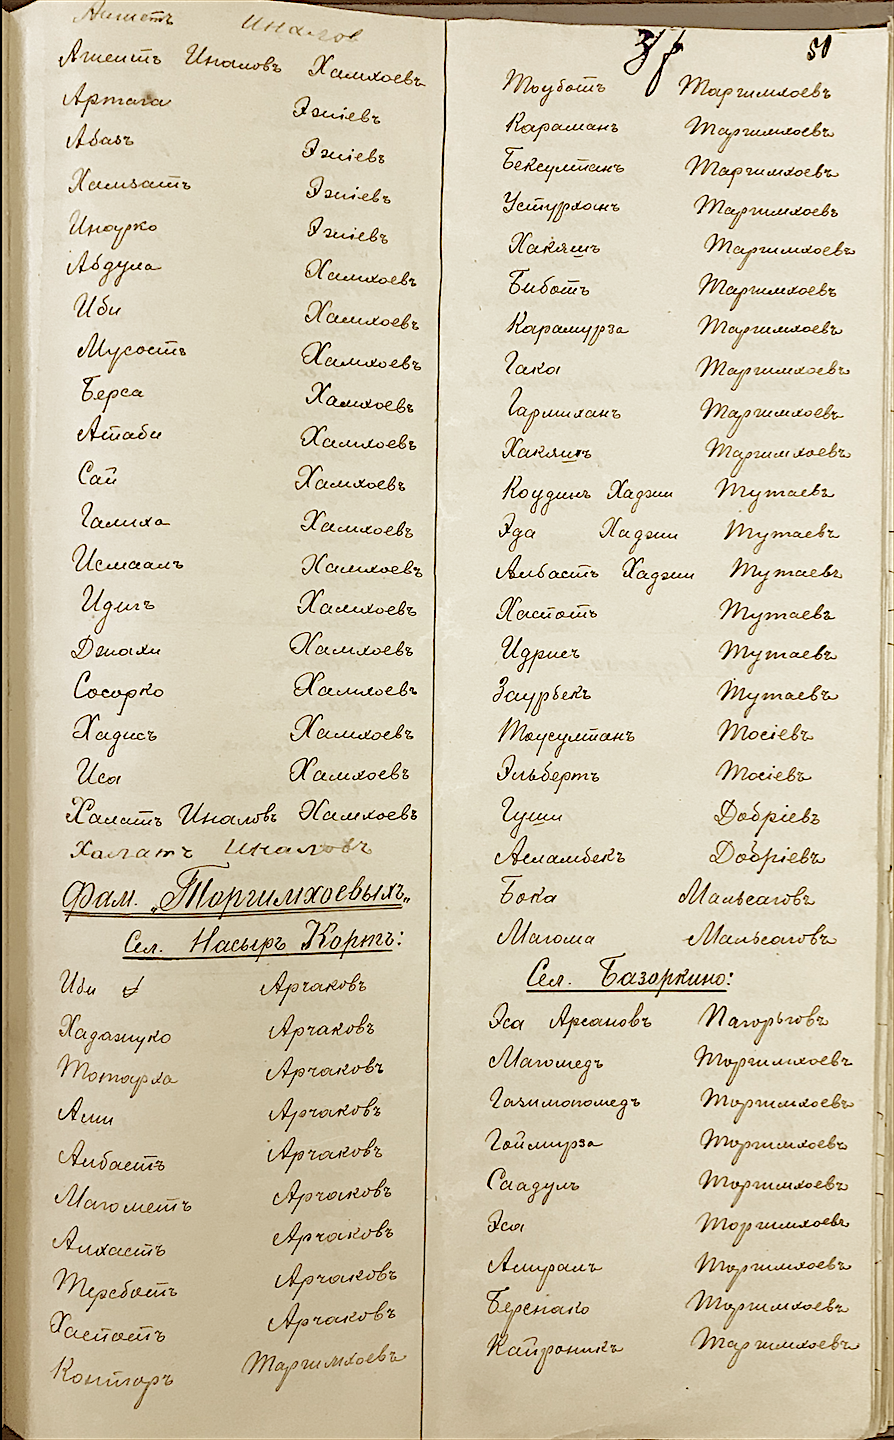 Ахметъ Иналов
Ахметъ Иналовъ Хамхоевъ
Артага Эгіевъ
Абавъ Эгіевъ
Хамзатъ Эгіевъ
Инарко Эгіевъ
Абдула Хамхоевъ
Иби Хамхоевъ
Мусостъ Хамхоевъ
Берса Хамхоевъ
Атаби Хамхоевъ
Сай Хамхоевъ
Галиха Хамхоевъ
Исмаалъ Хамхоевъ
Идигъ Хамхоевъ
Джахи Хамхоевъ
Сосорко Хамхоевъ
Хадисъ Хамхоевъ
Иса Хамхоевъ
Халатъ Иналовъ Хамхоевъ
Халатъ Иналовъ
Фам. „Торгимхоевыхъ„
Сел. Насыръ Кортъ:
Иби Арчаковъ
Хадажуко Арчаковъ
Тотарха Арчаковъ
Али Арчаковъ
Албастъ Арчаковъ
Магометъ Арчаковъ
Алхастъ Арчаковъ
Терсботъ Арчаковъ
Хаспотъ Арчаковъ
Конторъ Таргимхоевъ
51
Тоуботъ Таргимхоевъ
Караманъ Таргимхоевъ
Бексултанъ Таргимхоевъ
Устурханъ Таргимхоевъ
Хакяшъ Таргимхоевъ
Биботъ Таргимхоевъ
Карамурза Таргимхоевъ
Гака Таргимхоевъ
Гармиханъ Таргимхоевъ
Хакяшъ Таргимхоевъ
Коудинъ Хаджи Тутаевъ
Эда Хаджи Тутаевъ
Албастъ Хаджи Тутаевъ
Хаспотъ Тутаевъ
Идрисъ Тутаевъ
Заурбекъ Тутаевъ
Тоусултанъ Тосіевъ
Эльбертъ Тосіевъ
Гуши Добріевъ
Асламбекъ Добріевъ
Бока Мальсаговъ
Магома Мальсаговъ
Сел. Базоркино:
Эса Арсановъ Нагорьговъ
Магомедъ Торгимхоевъ
Газимагомедъ Торгимхоевъ
Гоймурза Торгимхоевъ
Саадулъ Торгимхоевъ
Эса Торгимхоевъ
Амиралъ Торгимхоевъ
Берснако Торгимхоевъ
Кайроникъ Таргимхоевъ